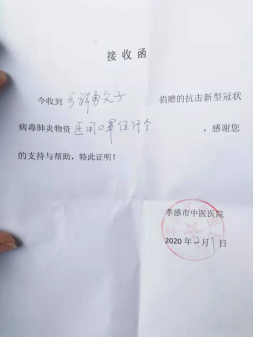 接收函
今收到 捐赠的抗击新型冠状
病毒肺炎物资 医用口罩 个 ，感谢您
的支持与帮助，特此证明！
孝感市中医医院
2020年2月1日